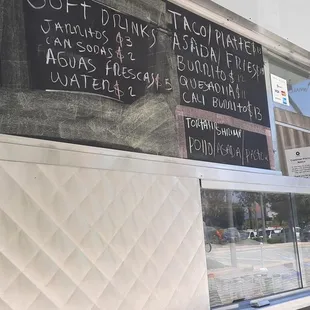 SOFT DRINKS
JARRITOS $3
CAN SODAS $2
AGUAS FRESCAS $5
WATER $2
TACO/PLATTE
ASADA/FRIES
BURRITO $
QUESADILLA $
CALI BURRITO $13
TORTAS/SHRIMP
POLLO/ASADA/